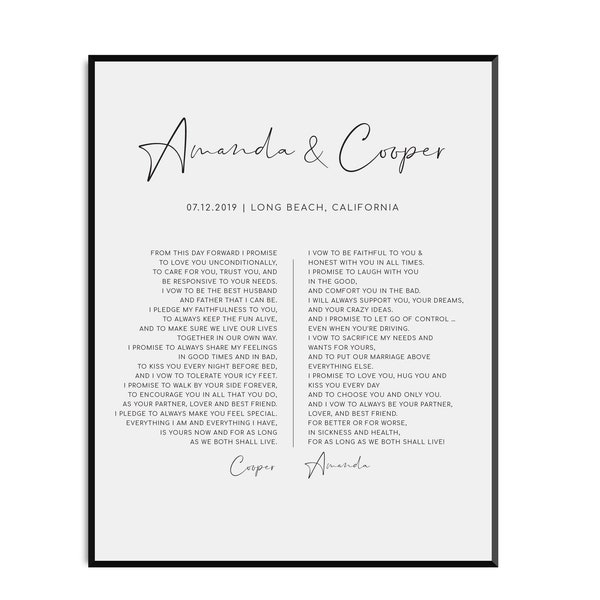 Amanda & Cooper
07.12.2019 | LONG BEACH, CALIFORNIA
FROM THIS DAY FORWARD I PROMISE
TO LOVE YOU UNCONDITIONALLY,
TO CARE FOR YOU, TRUST YOU, AND
BE RESPONSIVE TO YOUR NEEDS.
I VOW TO BE THE BEST HUSBAND
AND FATHER THAT I CAN BE.
I PLEDGE MY FAITHFULNESS TO YOU,
TO ALWAYS KEEP THE FUN ALIVE,
AND TO MAKE SURE WE LIVE OUR LIVES
TOGETHER IN OUR OWN WAY.
I PROMISE TO ALWAYS SHARE MY FEELINGS
IN GOOD TIMES AND IN BAD,
TO KISS YOU EVERY NIGHT BEFORE BED,
AND I VOW TO TOLERATE YOUR ICY FEET.
I PROMISE TO WALK BY YOUR SIDE FOREVER,
TO ENCOURAGE YOU IN ALL THAT YOU DO,
AS YOUR PARTNER, LOVER AND BEST FRIEND.
I PLEDGE TO ALWAYS MAKE YOU FEEL SPECIAL.
EVERYTHING I AM AND EVERYTHING I HAVE,
IS YOURS NOW AND FOR AS LONG
AS WE BOTH SHALL LIVE.
Cooper
I VOW TO BE FAITHFUL TO YOU &
HONEST WITH YOU IN ALL TIMES.
I PROMISE TO LAUGH WITH YOU
IN THE GOOD,
AND COMFORT YOU IN THE BAD.
I WILL ALWAYS SUPPORT YOU, YOUR DREAMS,
AND YOUR CRAZY IDEAS.
AND I PROMISE TO LET GO OF CONTROL ...
EVEN WHEN YOU'RE DRIVING.
I VOW TO SACRIFICE MY NEEDS AND
WANTS FOR YOURS,
AND TO PUT OUR MARRIAGE ABOVE
EVERYTHING ELSE.
I PROMISE TO LOVE YOU, HUG YOU AND
KISS YOU EVERY DAY
AND TO CHOOSE YOU AND ONLY YOU.
AND I VOW TO ALWAYS BE YOUR PARTNER,
LOVER, AND BEST FRIEND.
FOR BETTER OR FOR WORSE,
IN SICKNESS AND HEALTH,
FOR AS LONG AS WE BOTH SHALL LIVE!
Amanda